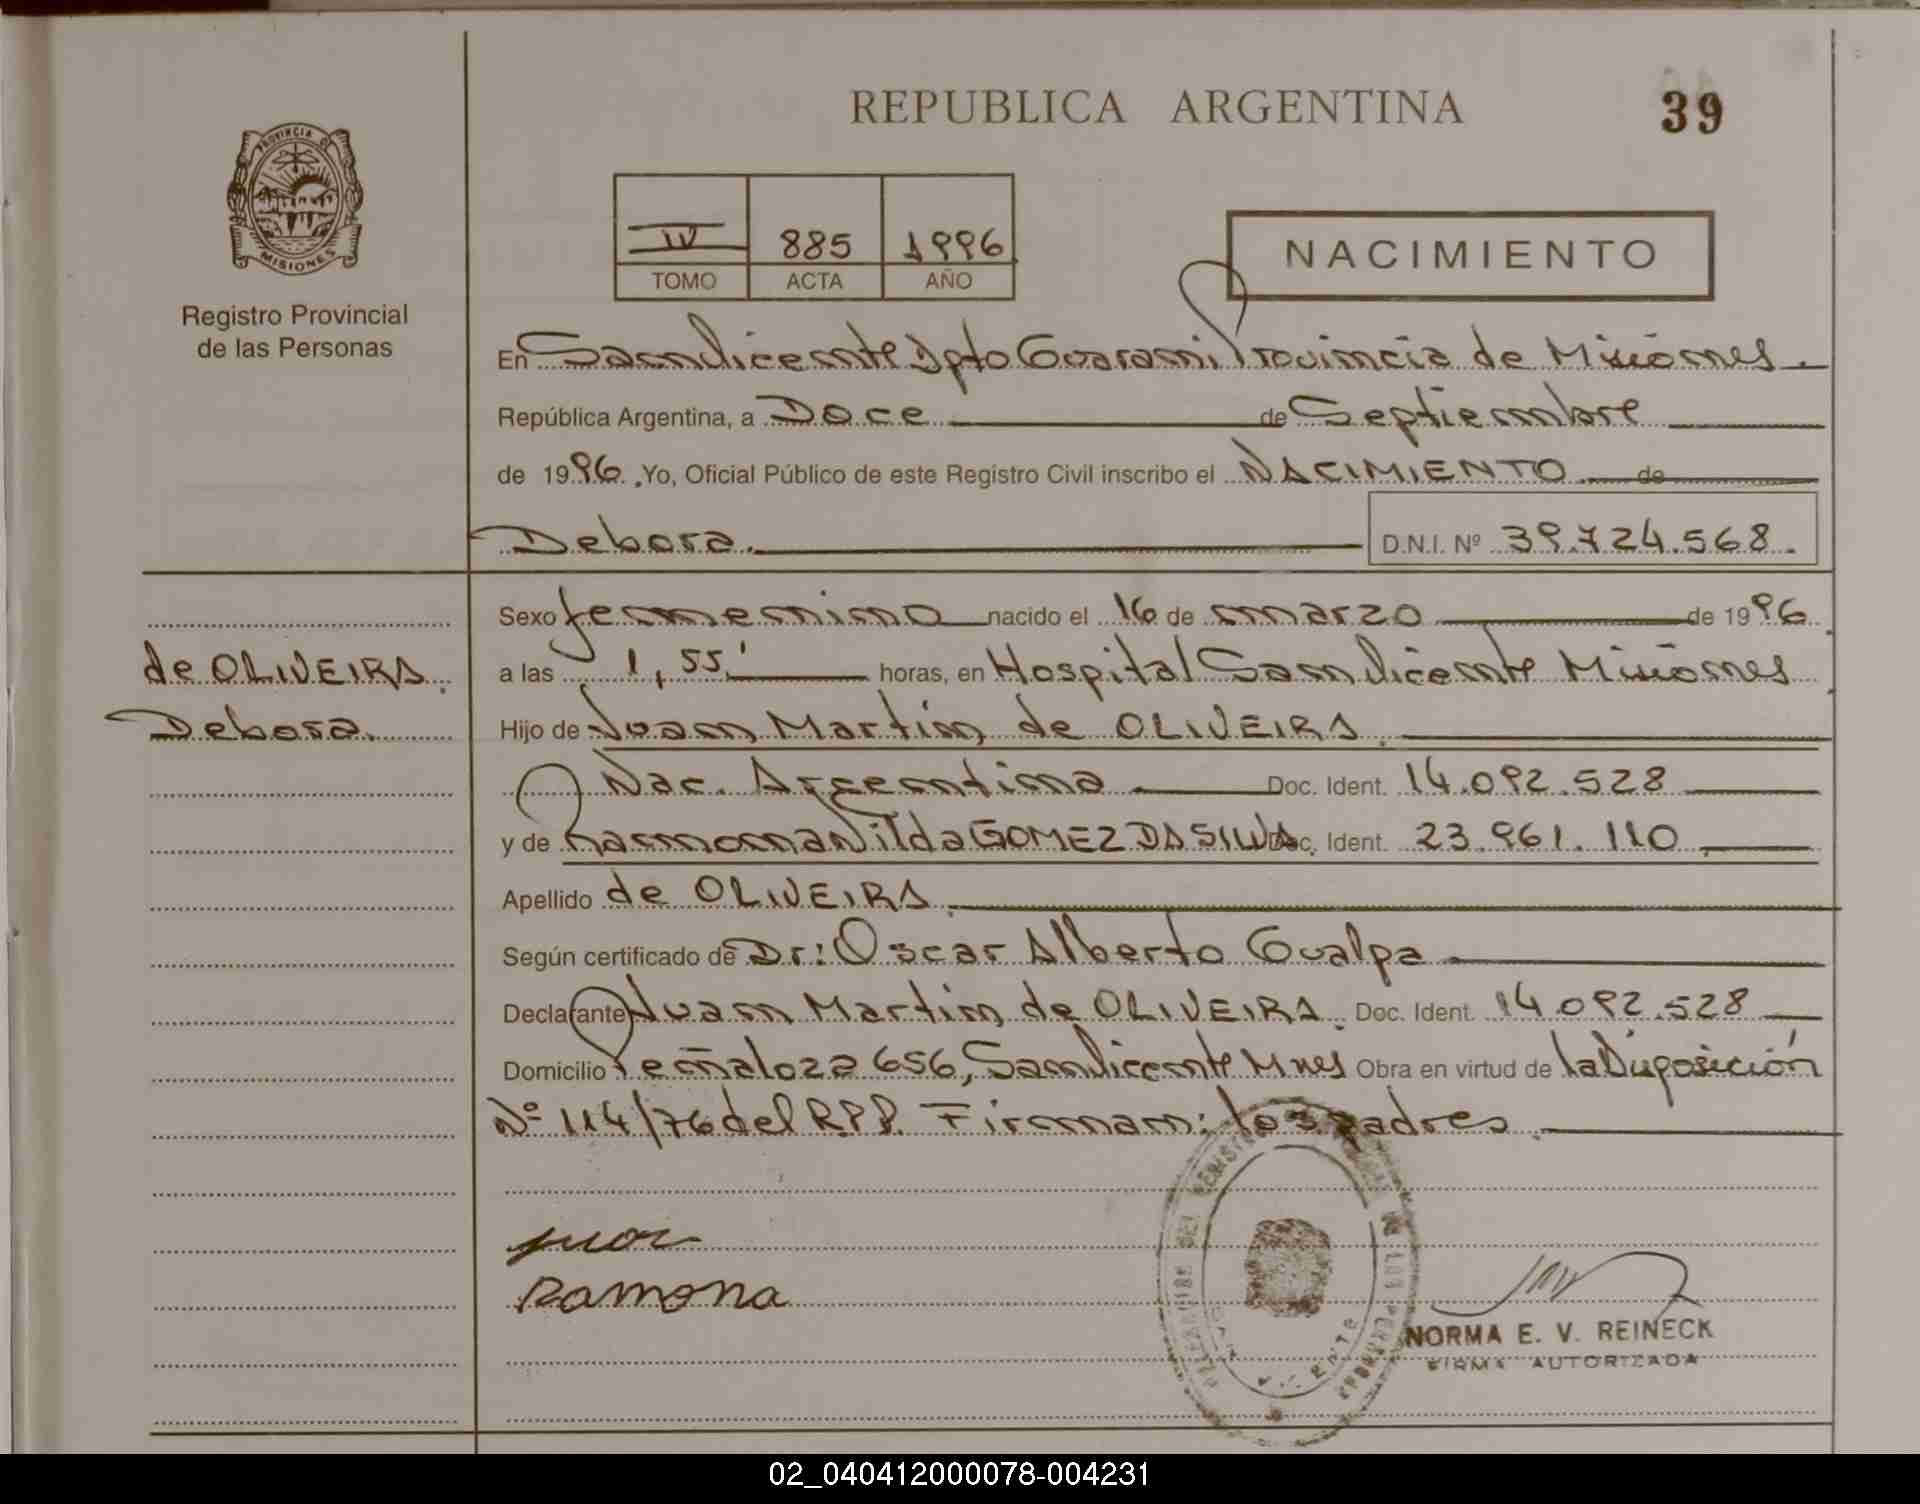 REPUBLICA ARGENTINA
39
PROVINCIA DE
MISIONES
Registro Provincial
de las Personas
IV 885 1996
TOMO ACTA AÑO
NACIMIENTO
En San Vicente Dpto Guarani Provincia de Misiones.
República Argentina, a Doce de Septiembre
de 1996. Yo, Oficial Público de este Registro Civil inscribo el NACIMIENTO de
Debora. D.N.I. Nº 39.724.568.
de OLIVEIRA.
Debora.
Sexo femenino nacido el 16 de marzo de 1996.
a las 1,55' horas, en Hospital San Vicente Misiones
Hijo de Juan Martin de OLIVEIRA.
Nac. Argentina Doc. Ident. 14.092.528
y de Ramona Nilda GOMEZ DA SILVA Doc. Ident. 23.961.110
Apellido de OLIVEIRA.
Según certificado de Dr: Oscar Alberto Gualpa
Declarante Juan Martin de OLIVEIRA. Doc. Ident. 14.092.528
Domicilio Peñaloza 656, San Vicente Mnes Obra en virtud de la Disposición
Nº 114/76 del R.P.P. Firman: los padres.
juan
Ramona
NORMA E. V. REINECK
FIRMA AUTORIZADA
02_040412000078-004231